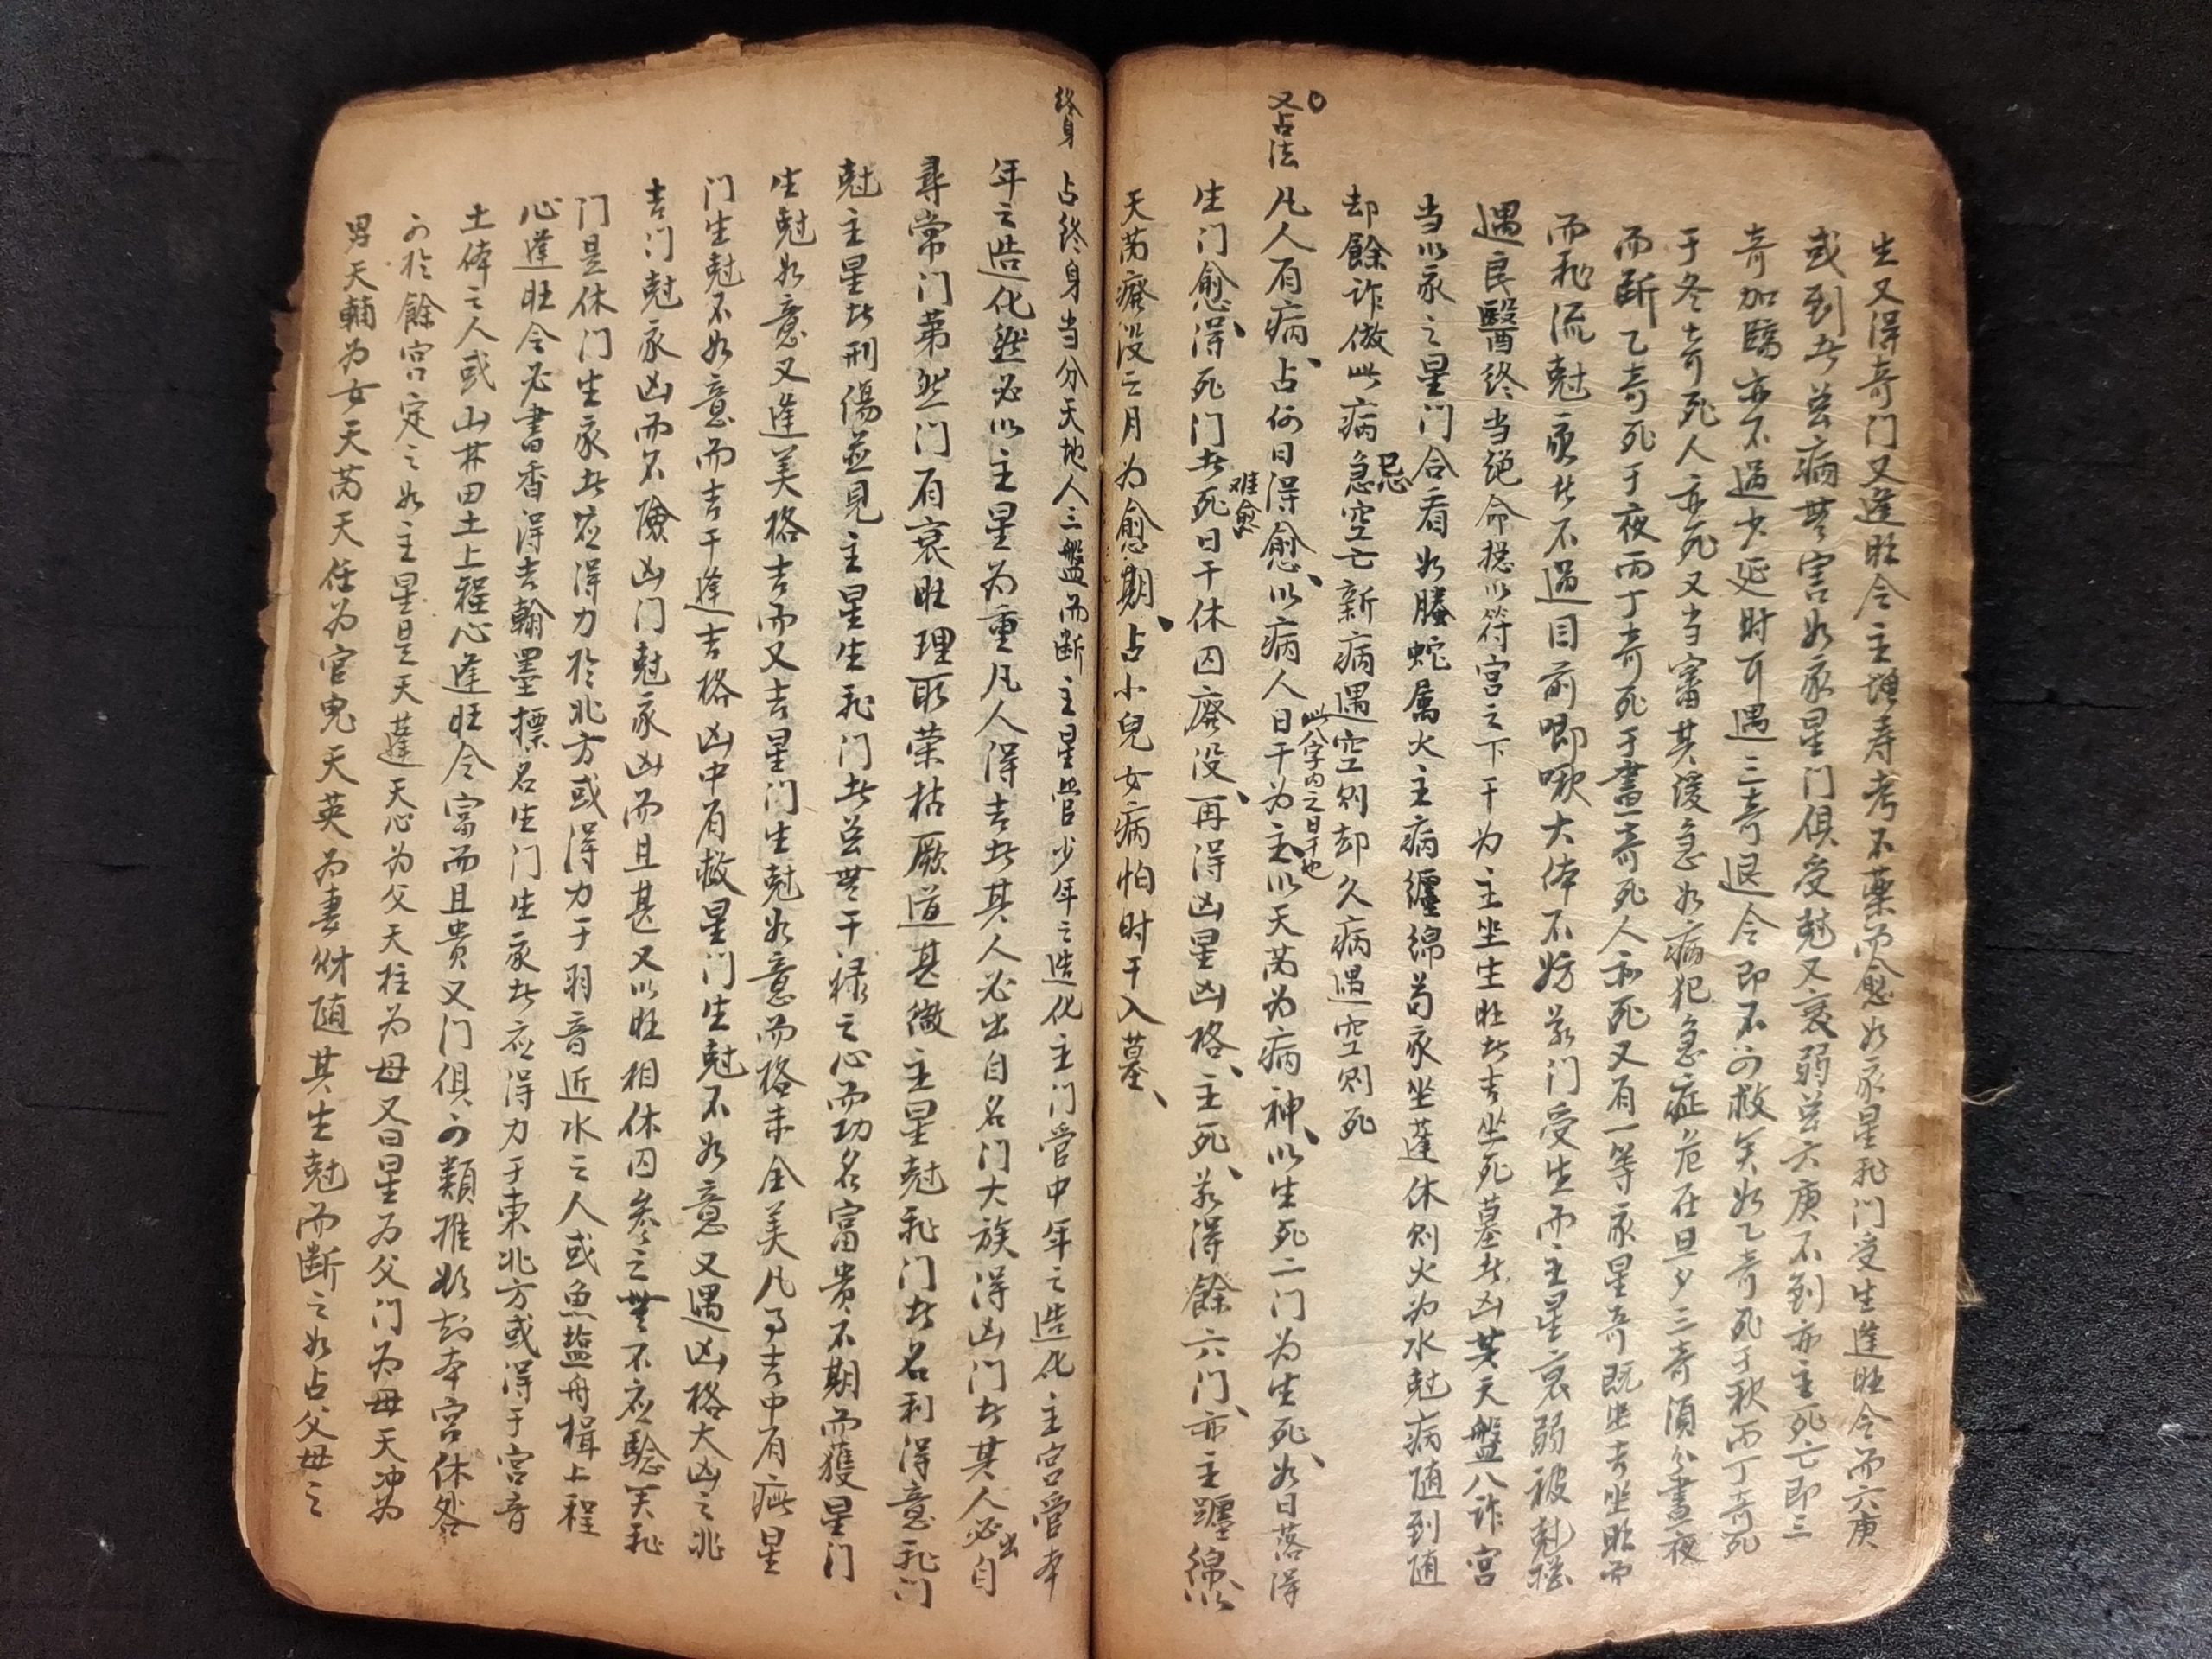 生又得奇门又逢旺令主增寿考不藥而愈如家星和门受生逢旺令而六庚
或到者並病無害如家星门俱受尅又衰弱並六庚不到亦主死亡即三
奇加臨亦不過少延时耳遇三奇退令即不可救矣如乙奇死于秋丙丁奇死
于冬奇死人亦死又当審其緩急如病犯急症危在旦夕三奇須分晝夜
而断乙奇死于夜丙丁奇死于晝奇死人和死又有一等家星奇既坐吉坐旺而
而和流尅家者不過目前唧啾大体不妨若门受生而主星衰弱被尅縂
遇良醫終当絕命捴以符宫之下干为主坐生旺者吉坐死墓者凶其天盤八诈宫
当以家之星门合看如螣蛇属火主病纏绵若家坐蓬休则火为水尅病随到随
却餘诈倣此病急忌空亡新病遇空则却久病遇空则死
又占法 凡人有病占何日得愈以病人日干为主以天芮为病神以生死二门为生死如日落得
此八字内之日干也
生门愈得死门者死日干休囚廢没再得凶星凶格主死若得餘六门亦主躔綿以
难愈
天芮廢没之月为愈期占小兒女病怕时干入墓
終身 占终身当分天地人三盤而断主星管少年之造化主门管中年之造化主宫管末
年之造化然必以主星为重凡人得吉者其人必出自名门大族得凶门者其人必出自
尋常门第然门有衰旺理取荣枯厥道甚微主星尅和门者名利得意和门
尅主星者刑傷並見主星生和门者並無干禄之心而功名富贵不期而獲星门
生尅如意又逢美格吉而又吉星门生尅如意而格未全美凡事吉中有疵星
门生尅不如意而吉干逢吉格凶中有救星门生尅不如意又遇凶格大凶之兆
吉门尅家凶而不險凶门尅家凶而且甚又以旺相休囚参之無不应驗矣和
门是休门生家者应得力於北方或得力于羽音近水之人或魚盐舟楫上程
心逢旺令必書香得吉翰墨標名生门生家者应得力于東北方或得于宫音
土体之人或山林田土上程心逢旺令富而且貴又门俱可類推如刦本宫休咎
可於餘宫定之如主星是天蓬天心为父天柱为母又曰星为父门为母天冲为
男天輔为女天芮天任为官鬼天英为妻财随其生尅而断之如占父母之